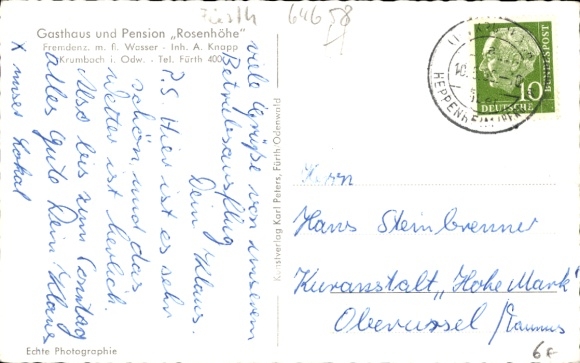 Fürth 64658
Gasthaus und Pension „Rosenhöhe"
Fremdenz. m. fl. Wasser - Inh. A. Knapp
Krumbach i. Odw. - Tel. Fürth 400
viele Grüße von unserem
Betriebsausflug
Dein Klaus.
P.S. Hier ist es sehr
schön und das
Wetter ist herlich.
Also bis zum Sonntag
alles Gute Dein Klaus
X unser Lokal
Echte Photographie
Kunstverlag Karl Peters, Fürth Odenwald
HEPPENHEIM
10
DEUTSCHE
BUNDESPOST
Herrn
Hans Steinbrenner
Kuranstalt „Hohe Mark"
Oberursel / Taunus
6F